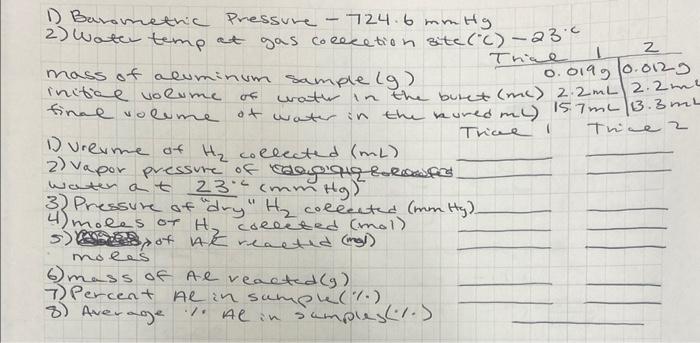 1) Barometric Pressure - 724.6 mmHg
2) Water temp at gas collection site (°C) - 23°C
Trial 1 2
mass of aluminum sample (g) 0.019g 0.012g
initial volume of water in the buret (mL) 2.2mL 2.2mL
final volume of water in the (mL) 15.7mL 13.3mL
Trial 1 Trial 2
1) Volume of H2 collected (mL)
2) Vapor pressure of
water at 23°C (mmHg)
3) Pressure of "dry" H2 collected (mmHg)
4) moles of H2 collected (mol)
5) of Al reacted (mol)
moles
6) mass of Al reacted (g)
7) Percent Al in sample (%)
8) Average % Al in samples (%)